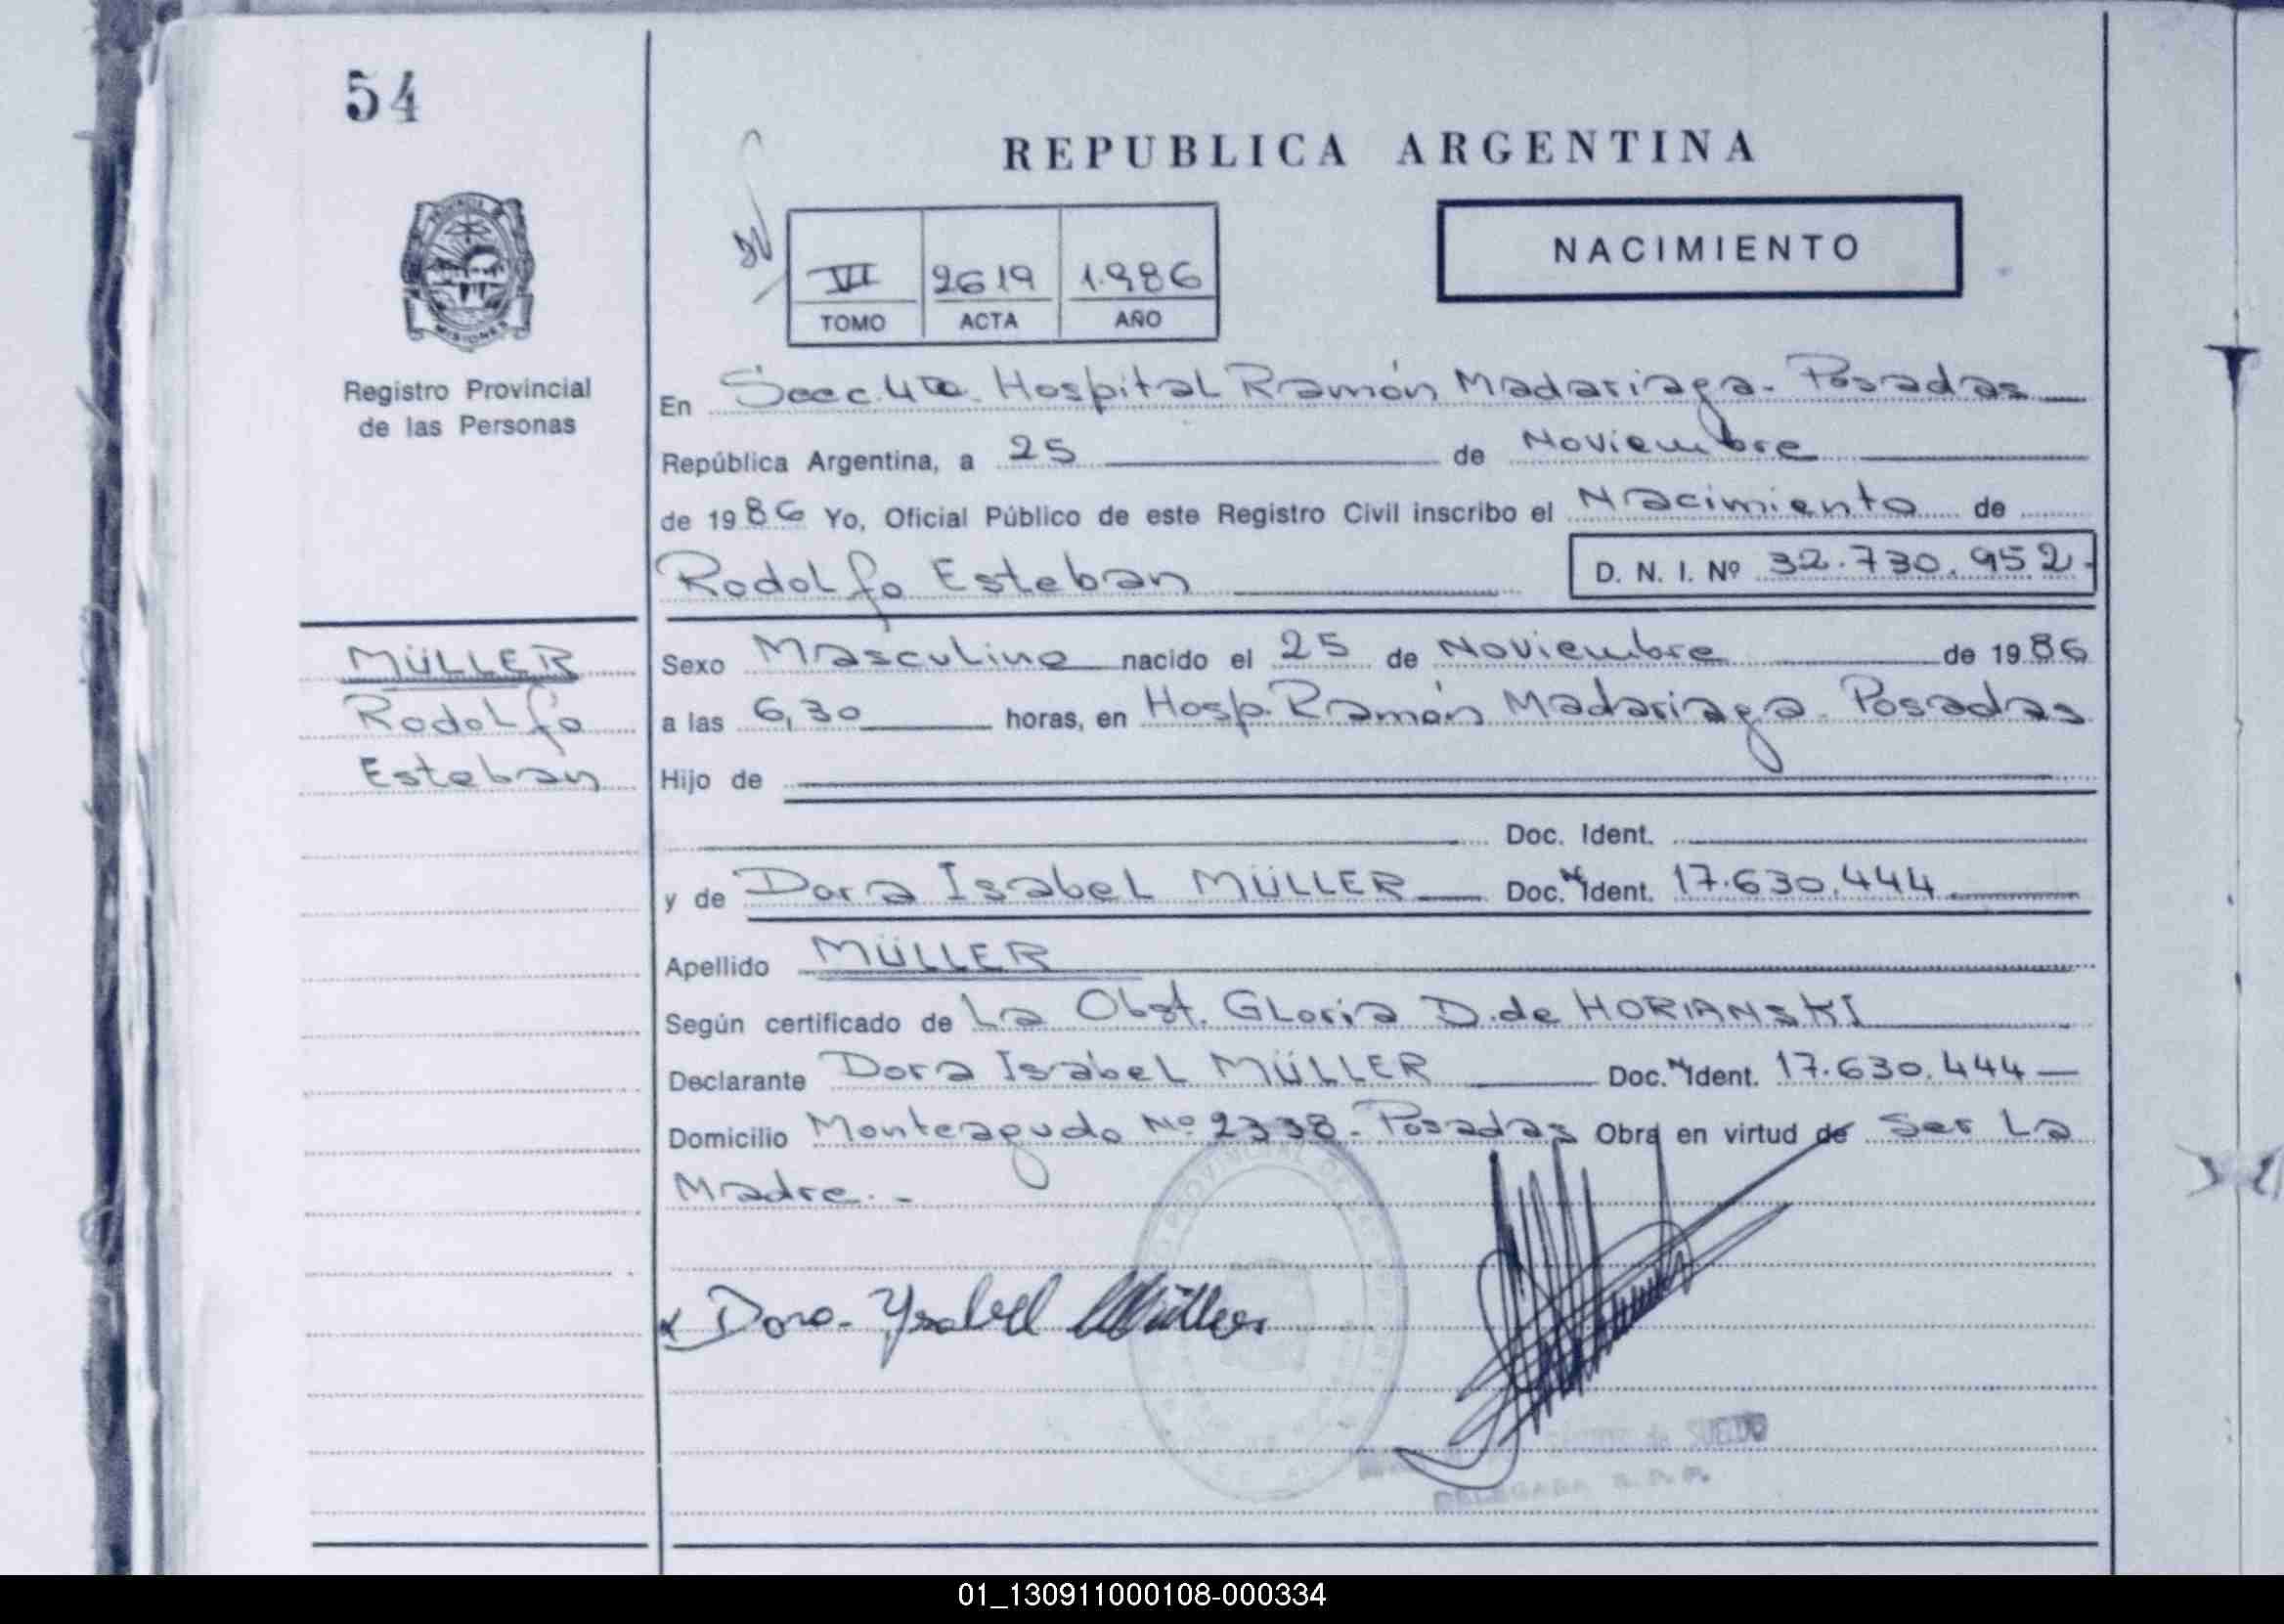 54
REPUBLICA ARGENTINA
NACIMIENTO
VII 2619 1.986
TOMO ACTA AÑO
MISIONES
Registro Provincial
de las Personas
En Secc. 4ta. Hospital Ramón Madariaga - Posadas
República Argentina, a 25 de Noviembre
de 1986 Yo, Oficial Público de este Registro Civil inscribo el Nacimiento de
Rodolfo Esteban D. N. I. Nº 32.730.952.
MÜLLER
Rodolfo
Esteban
Sexo Masculino nacido el 25 de Noviembre de 1986
a las 6,30 horas, en Hosp. Ramón Madariaga - Posadas
Hijo de
Doc. Ident.
y de Dora Isabel MÜLLER Doc. Ident. 17.630.444
Apellido MÜLLER
Según certificado de La Obst. Gloria D. de HORIANSKI
Declarante Dora Isabel MÜLLER Doc. Ident. 17.630.444
Domicilio Monteagudo Nº 2338 - Posadas Obra en virtud de Ser La
Madre. -
Dora Ysabel Müller
de SUELDO
DELEGADA
01_130911000108-000334